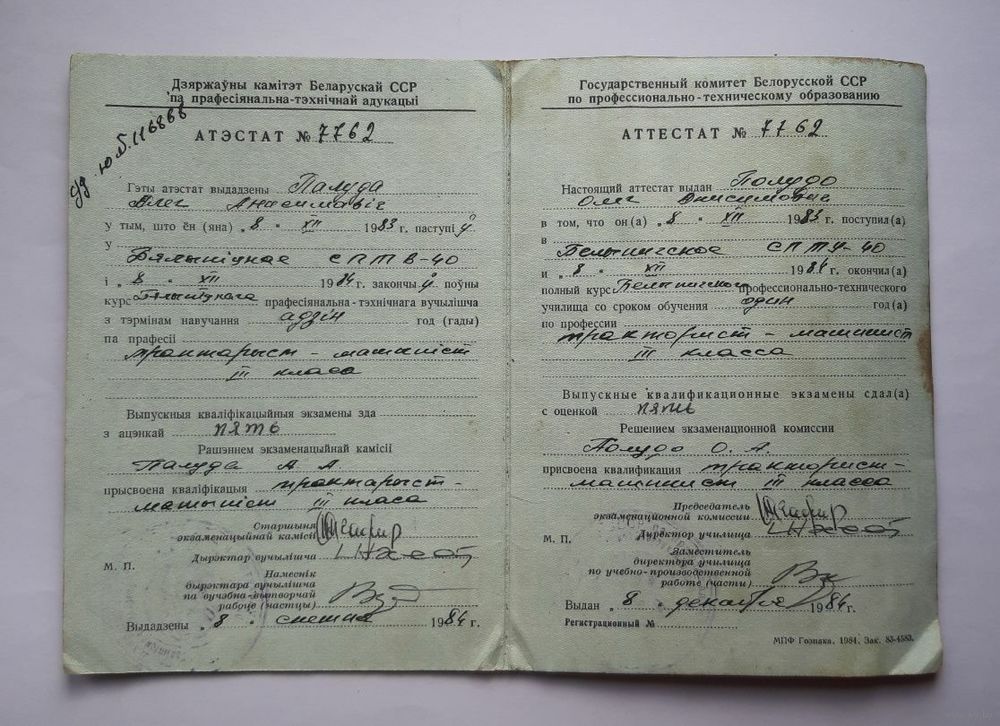 Дзяржаўны камітэт Беларускай ССР
па прафесіянальна-тэхнічнай адукацыі
АТЭСТАТ № 7762
Гэты атэстат выдадзены Палуда
Алег Анісімавіч
у тым, што ён (яна) „ 8 " XII 1983 г. паступіў
у
Бялыніцкае СПТВ-40
і „ 8 " XII 1984 г. закончыў поўны
курс Бялыніцкага прафесіянальна-тэхнічнага вучылішча
з тэрмінам навучання адзін год (гады)
па прафесіі
трактарыст-машыніст
III класа
Выпускныя кваліфікацыйныя экзамены зда
з ацэнкай пять
Рашэннем экзаменацыйнай камісіі
Палуда А А
прысвоена кваліфікацыя трактарыст-
машыніст III класа
Старшыня
экзаменацыйнай камісіі
Дырэктар вучылішча
М. П.
Намеснік
дырэктара вучылішча
па вучэбна-вытворчай
рабоце (частцы)
Выдадзены „ 8 " снежня 1984 г.
Государственный комитет Белорусской ССР
по профессионально-техническому образованию
АТТЕСТАТ № 7762
Настоящий аттестат выдан Полудо
Олег Анисимович
в том, что он(а) „ 8 " XII 1983 г. поступил(а)
в
Белыничское СПТУ-40
и „ 8 " XII 1984 г. окончил(а)
полный курс Белыничского профессионально-технического
училища со сроком обучения один год(а)
по профессии
тракторист-машинист
III класса
Выпускные квалификационные экзамены сдал(а)
с оценкой пять
Решением экзаменационной комиссии
Полудо О. А.
присвоена квалификация тракторист-
машинист III класса
Председатель
экзаменационной комиссии
М. П.
Директор училища
Заместитель
директора училища
по учебно-производственной
работе (части)
Выдан „ 8 " декабря 1984 г.
Регистрационный №
МПФ Гознака. 1984. Зак. 83-4583.